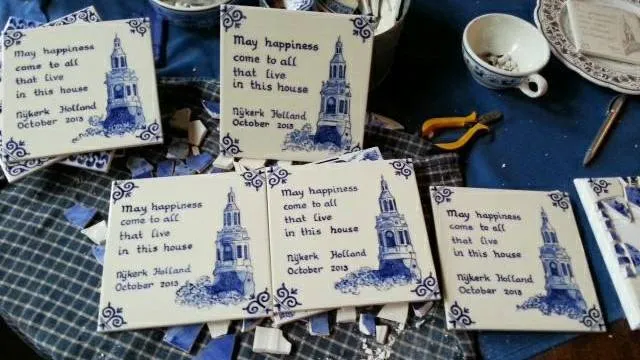 May happiness
come to all
that live
in this house
Nijkerk Holland
October 2013
May happiness
come to all
that live
in this house
Nijkerk Holland
October 2013
May happiness
come to all
that live
in this house
Nijkerk Holland
October 2013
May happiness
come to all
that live
in this house
Nijkerk Holland
October 2013
May happiness
come to all
that live
in this house
Nijkerk Holland
October 2013